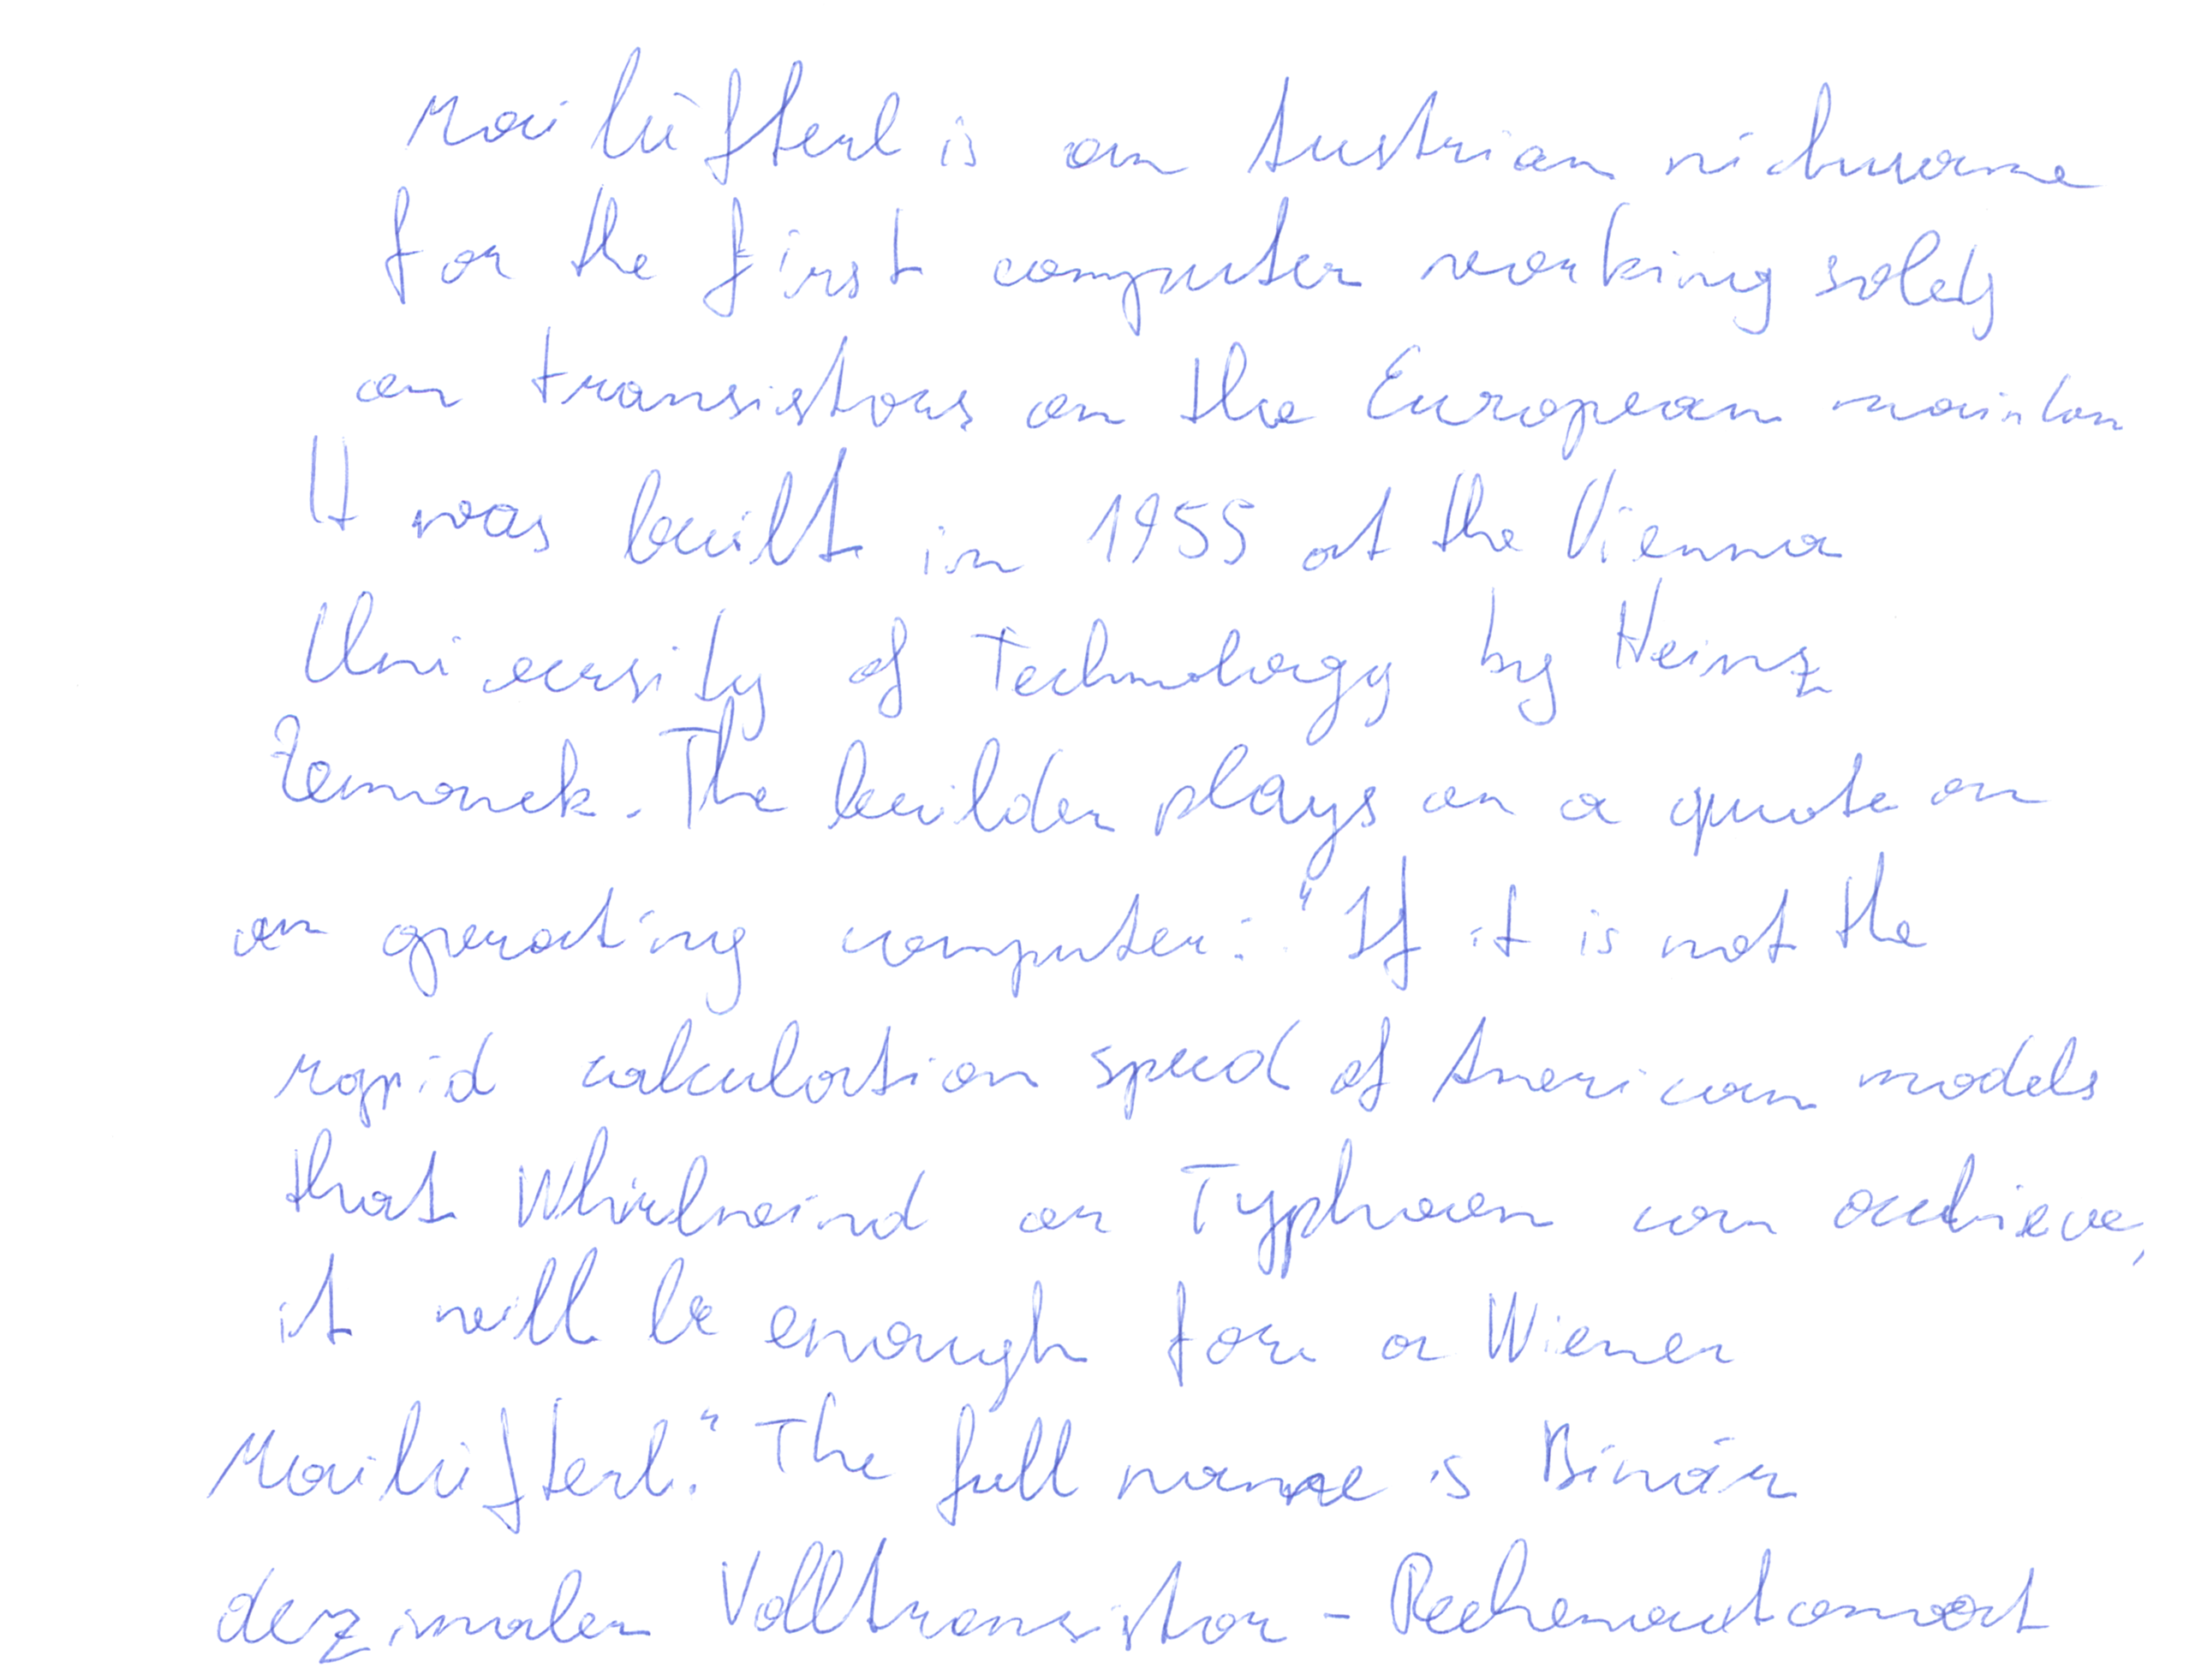 Mailüfterl is an Austrian nickname
for the first computer working solely
on transistors on the European mainlan
It was built in 1955 at the Vienna
University of Technology by Heinz
Zemanek. The builder plays on a quote on
an operating computer: "If it is not the
rapid calculation speed of American models
that Whirlwind or Typhoon can achieve,
it will be enough for a Wiener
Mailüfterl." The full name is Binär
dezimaler Volltransistor-Rechenautomat